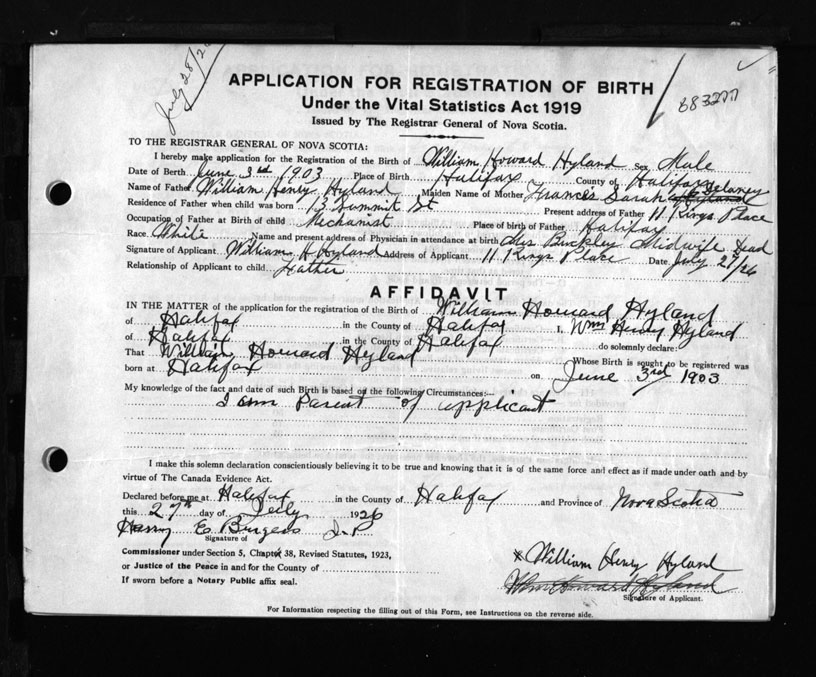 July 28/26
883277
APPLICATION FOR REGISTRATION OF BIRTH
Under the Vital Statistics Act 1919
Issued by The Registrar General of Nova Scotia.
TO THE REGISTRAR GENERAL OF NOVA SCOTIA:
I hereby make application for the Registration of the Birth of William Howard Hyland Sex Male
Date of Birth June 3rd 1903 Place of Birth Halifax County of Halifax
Name of Father William Henry Hyland Maiden Name of Mother Frances Sarah Hyland Delaney
Residence of Father when child was born 13 Summit St Present address of Father 11 Kings Place
Occupation of Father at Birth of child Mechanist Place of birth of Father Halifax
Race White Name and present address of Physician in attendance at birth Buckley Midwife Dead
Signature of Applicant William H Hyland Address of Applicant 11 Kings Place Date July 27/26
Relationship of Applicant to child Father
AFFIDAVIT
IN THE MATTER of the application for the registration of the Birth of William Howard Hyland
of Halifax in the County of Halifax I, Wm Henry Hyland
of Halifax in the County of Halifax do solemnly declare:
That William Howard Hyland Whose Birth is sought to be registered was
born at Halifax on June 3rd 1903
My knowledge of the fact and date of such Birth is based on the following Circumstances:—
I am Parent of applicant
I make this solemn declaration conscientiously believing it to be true and knowing that it is of the same force and effect as if made under oath and by
virtue of The Canada Evidence Act.
Declared before me at Halifax in the County of Halifax and Province of Nova Scotia
this 27th day of July 1926
Harry E Burgess J.P
Signature of
Commissioner under Section 5, Chapter 38, Revised Statutes, 1923,
or Justice of the Peace in and for the County of
If sworn before a Notary Public affix seal.
x William Henry Hyland
Wm Howard Hyland
Signature of Applicant.
For Information respecting the filling out of this Form, see Instructions on the reverse side.